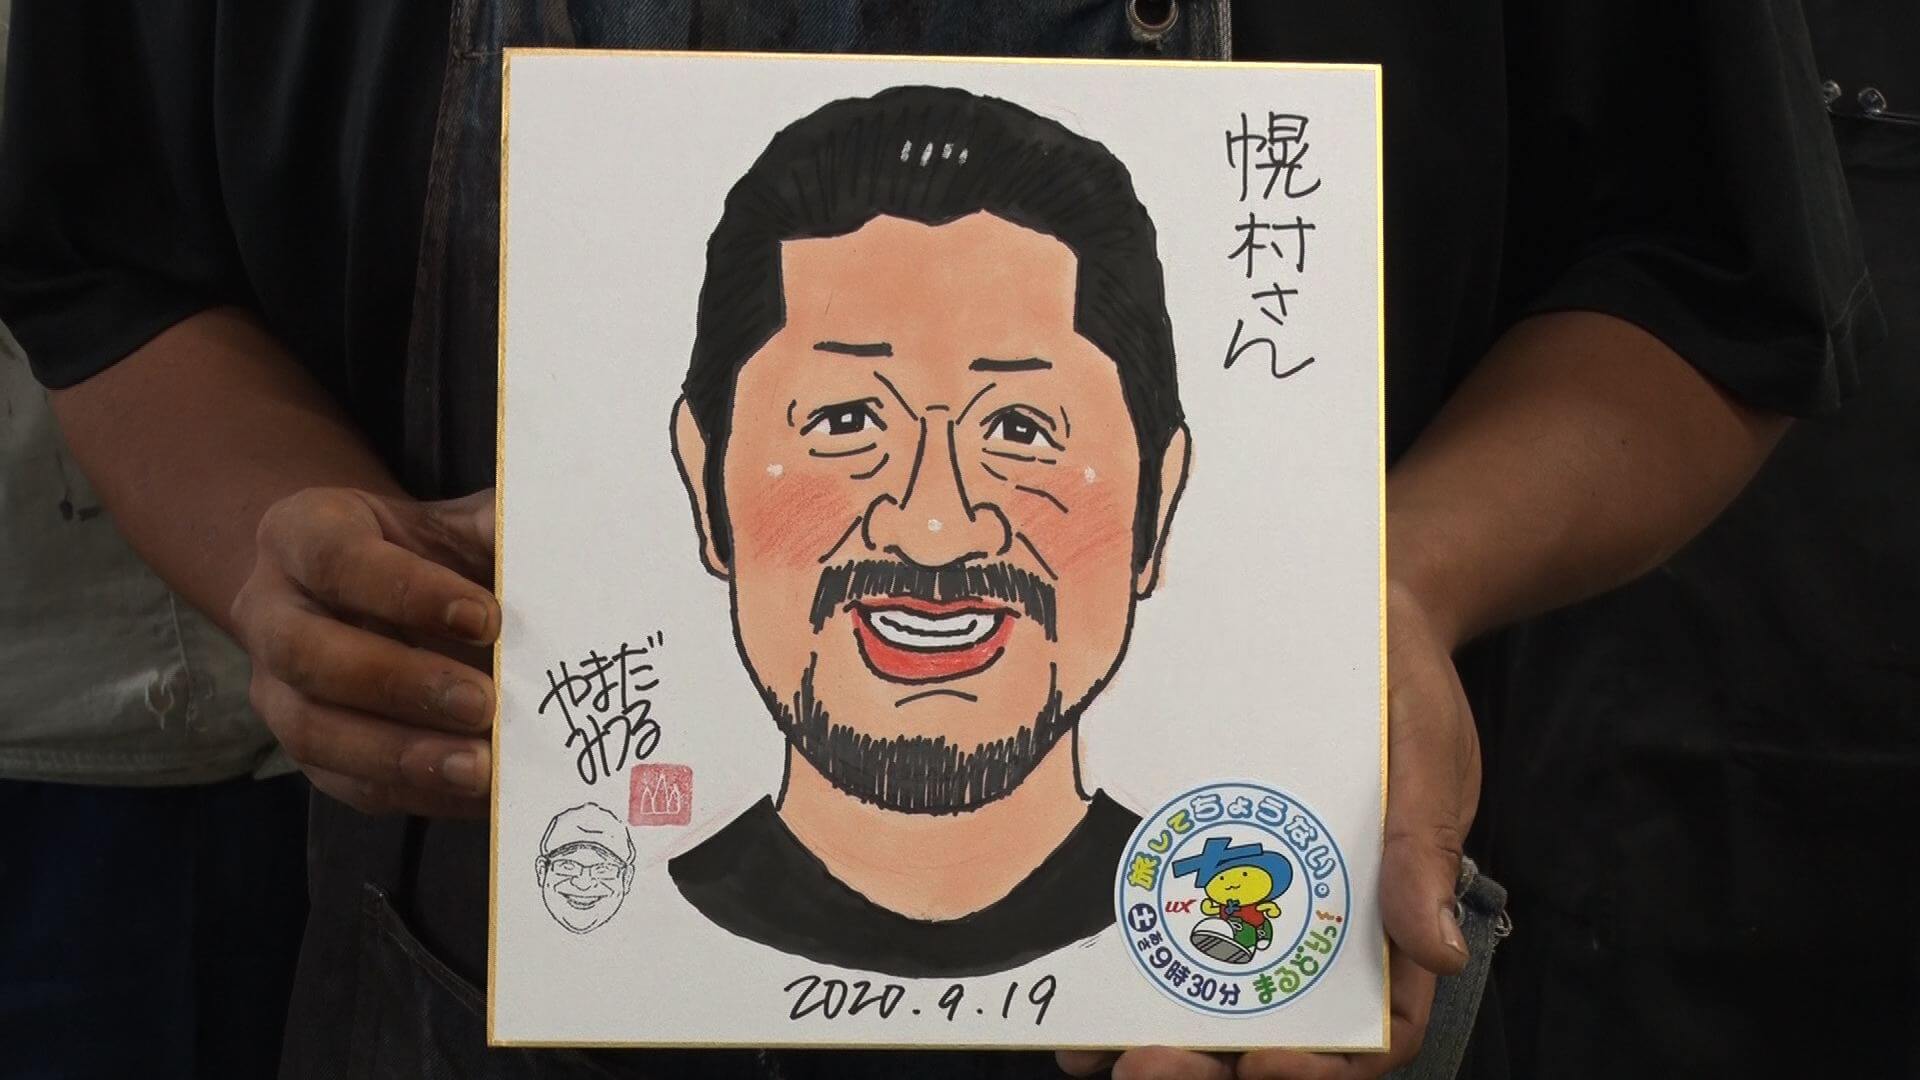 幌村さん
やまだ
みつる
2020.9.19
旅してちょうない。
UX
土 さあ 9時30分 まるどりっ!